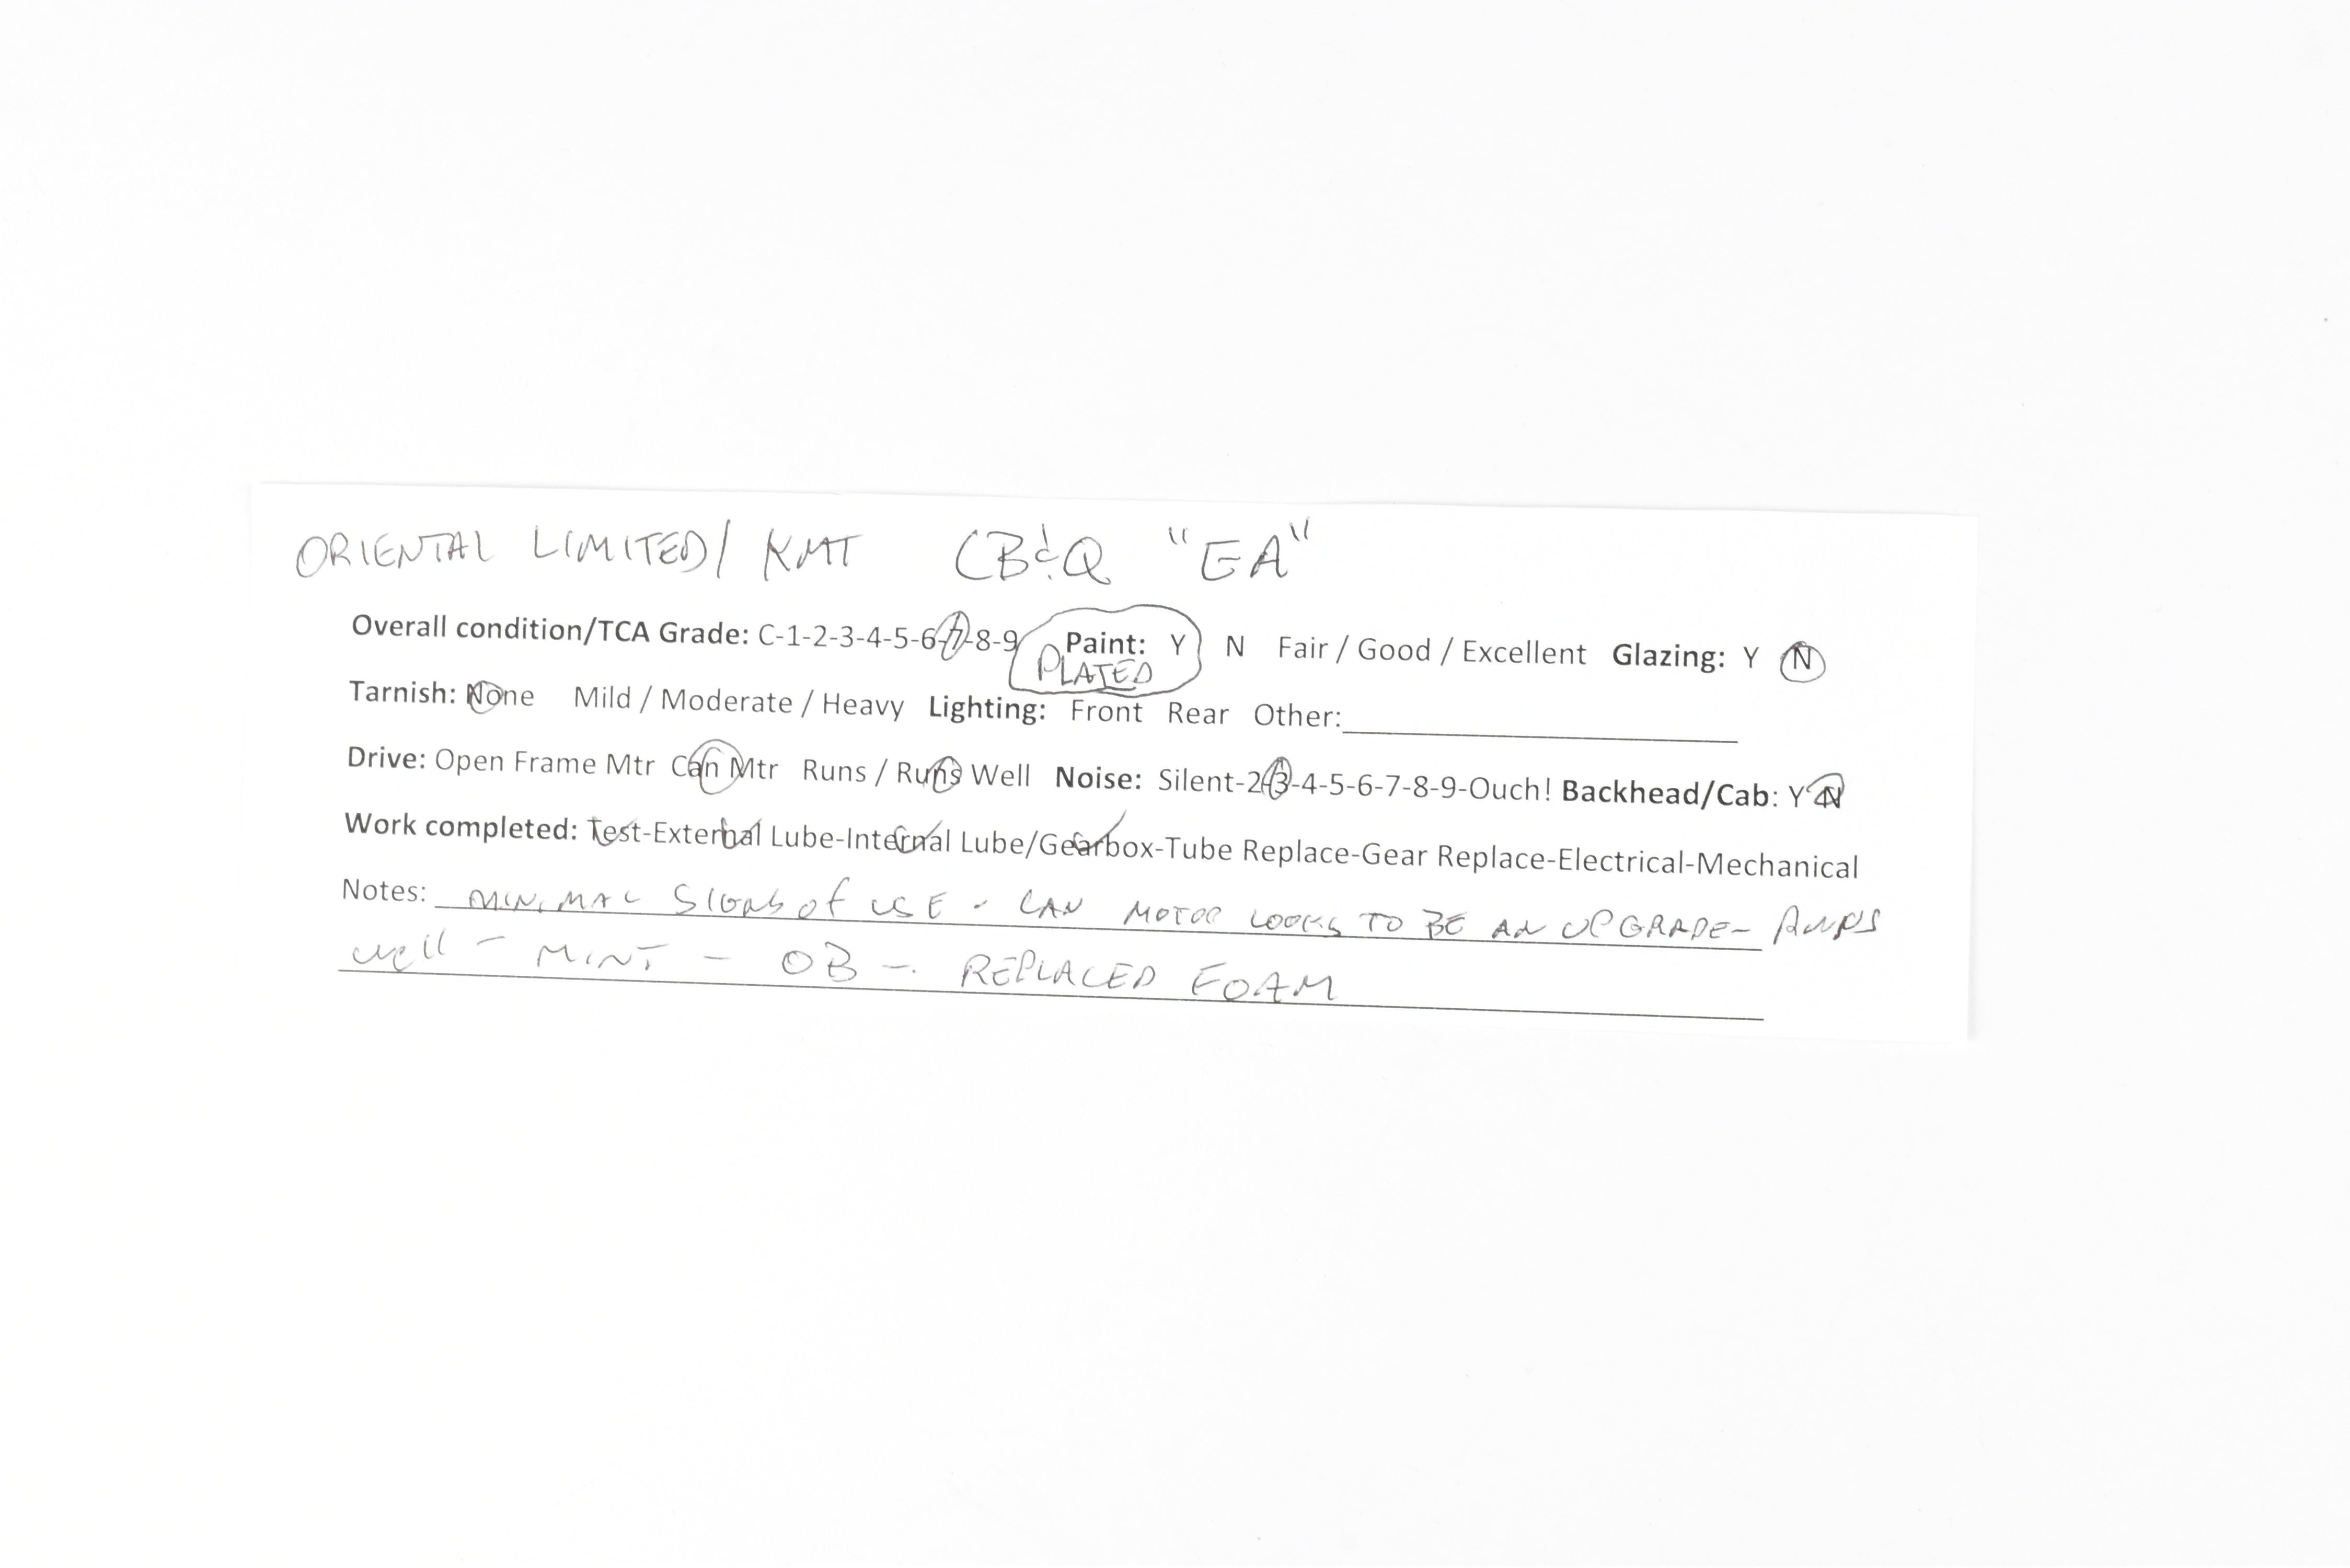 ORIENTAL LIMITED/ KMT CB&Q "EA"
Overall condition/TCA Grade: C-1-2-3-4-5-6-7-8-9 Paint: Y N Fair / Good / Excellent Glazing: Y N
PLATED
Tarnish: None Mild / Moderate / Heavy Lighting: Front Rear Other:
Drive: Open Frame Mtr Can Mtr Runs / Runs Well Noise: Silent-2-3-4-5-6-7-8-9-Ouch! Backhead/Cab: Y N
Work completed: Test-External Lube-Internal Lube/Gearbox-Tube Replace-Gear Replace-Electrical-Mechanical
Notes: MINIMAL SIGNS of USE - CAN MOTOR LOOKS TO BE AN UPGRADE - RUNS
well - MINT - OB - REPLACED FOAM